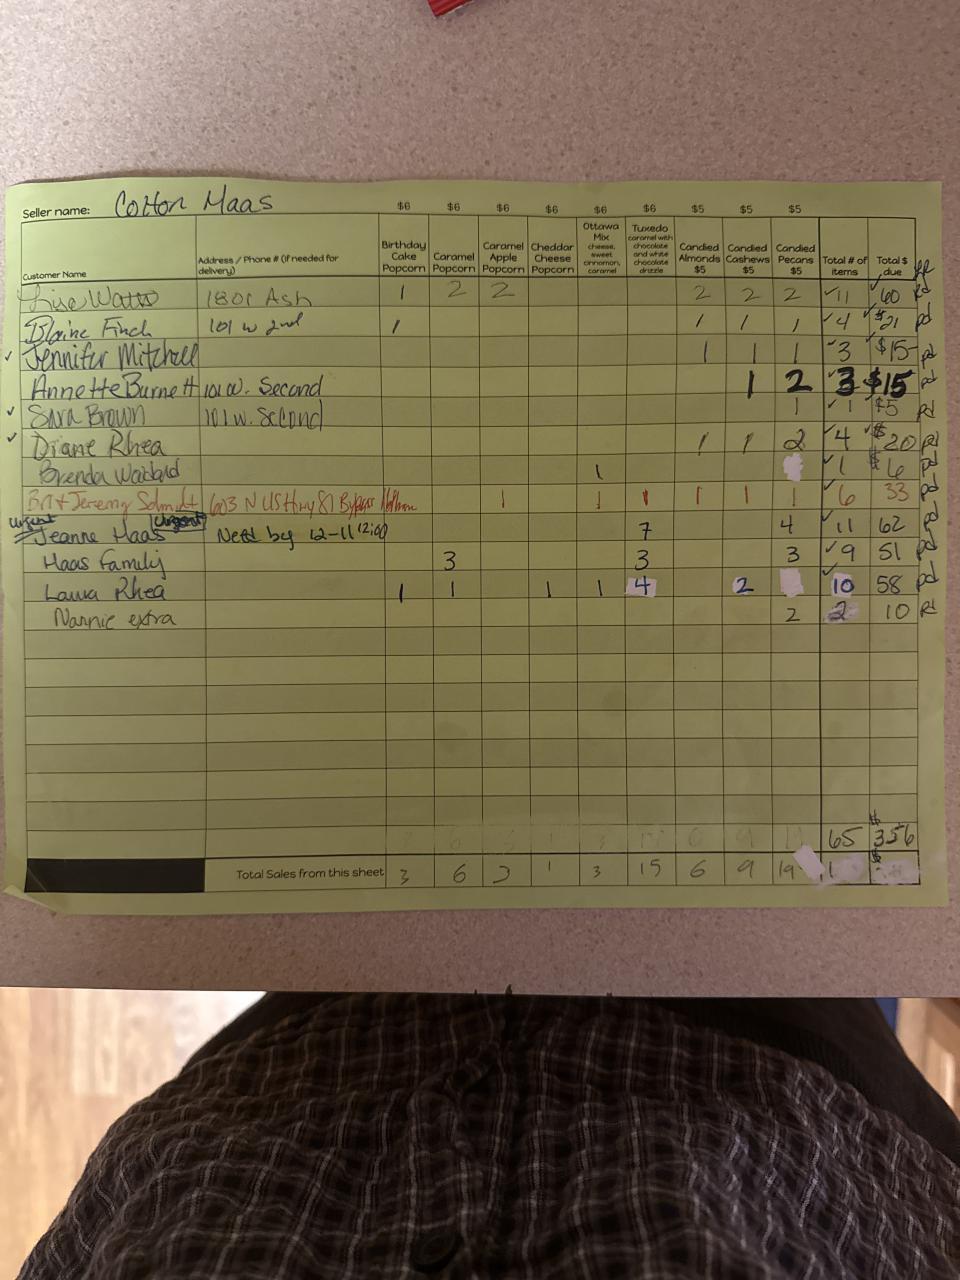 Seller name: Cotton Maas $6 $6 $6 $6 $6 $6 $5 $5 $5
Customer Name Address / Phone # (if needed for delivery) Birthday Cake Popcorn Caramel Popcorn Caramel Apple Popcorn Cheddar Cheese Popcorn Ottawa Mix cheese, sweet cinnamon, caramel Tuxedo caramel with chocolate and white chocolate drizzle Candied Almonds $5 Candied Cashews $5 Candied Pecans $5 Total # of items Total $ due
Lise Watts 1801 Ash 1 2 2 2 2 2 ✓11 ✓60 Pd
Blaine Finch 101 w 2nd 1 1 1 1 ✓4 ✓$21 pd
✓ Jennifer Mitchell 1 1 1 ✓3 $15- pd
Annette Burnett 101 W. Second 1 2 3 $15 pd
✓ Sara Brown 101 W. Second 1 ✓1 $5 pd
✓ Diane Rhea 1 1 2 ✓4 ✓$20 pd
Brenda 1 ✓1 $6 pd
Brit & Jeremy Schmidt 603 N US Hwy 81 Bypass 1 1 1 1 1 1 ✓6 33 pd
Urgent Jeanne Maas Urgent Need by 12-11 12:00 7 4 ✓11 62 pd
Maas Family 3 3 3 ✓9 51 pd
Laura Rhea 1 1 1 1 4 2 ✓10 58 pd
Nannie extra 2 2 10 Pd
65 $356
Total Sales from this sheet 3 6 3 1 3 15 6 9 19